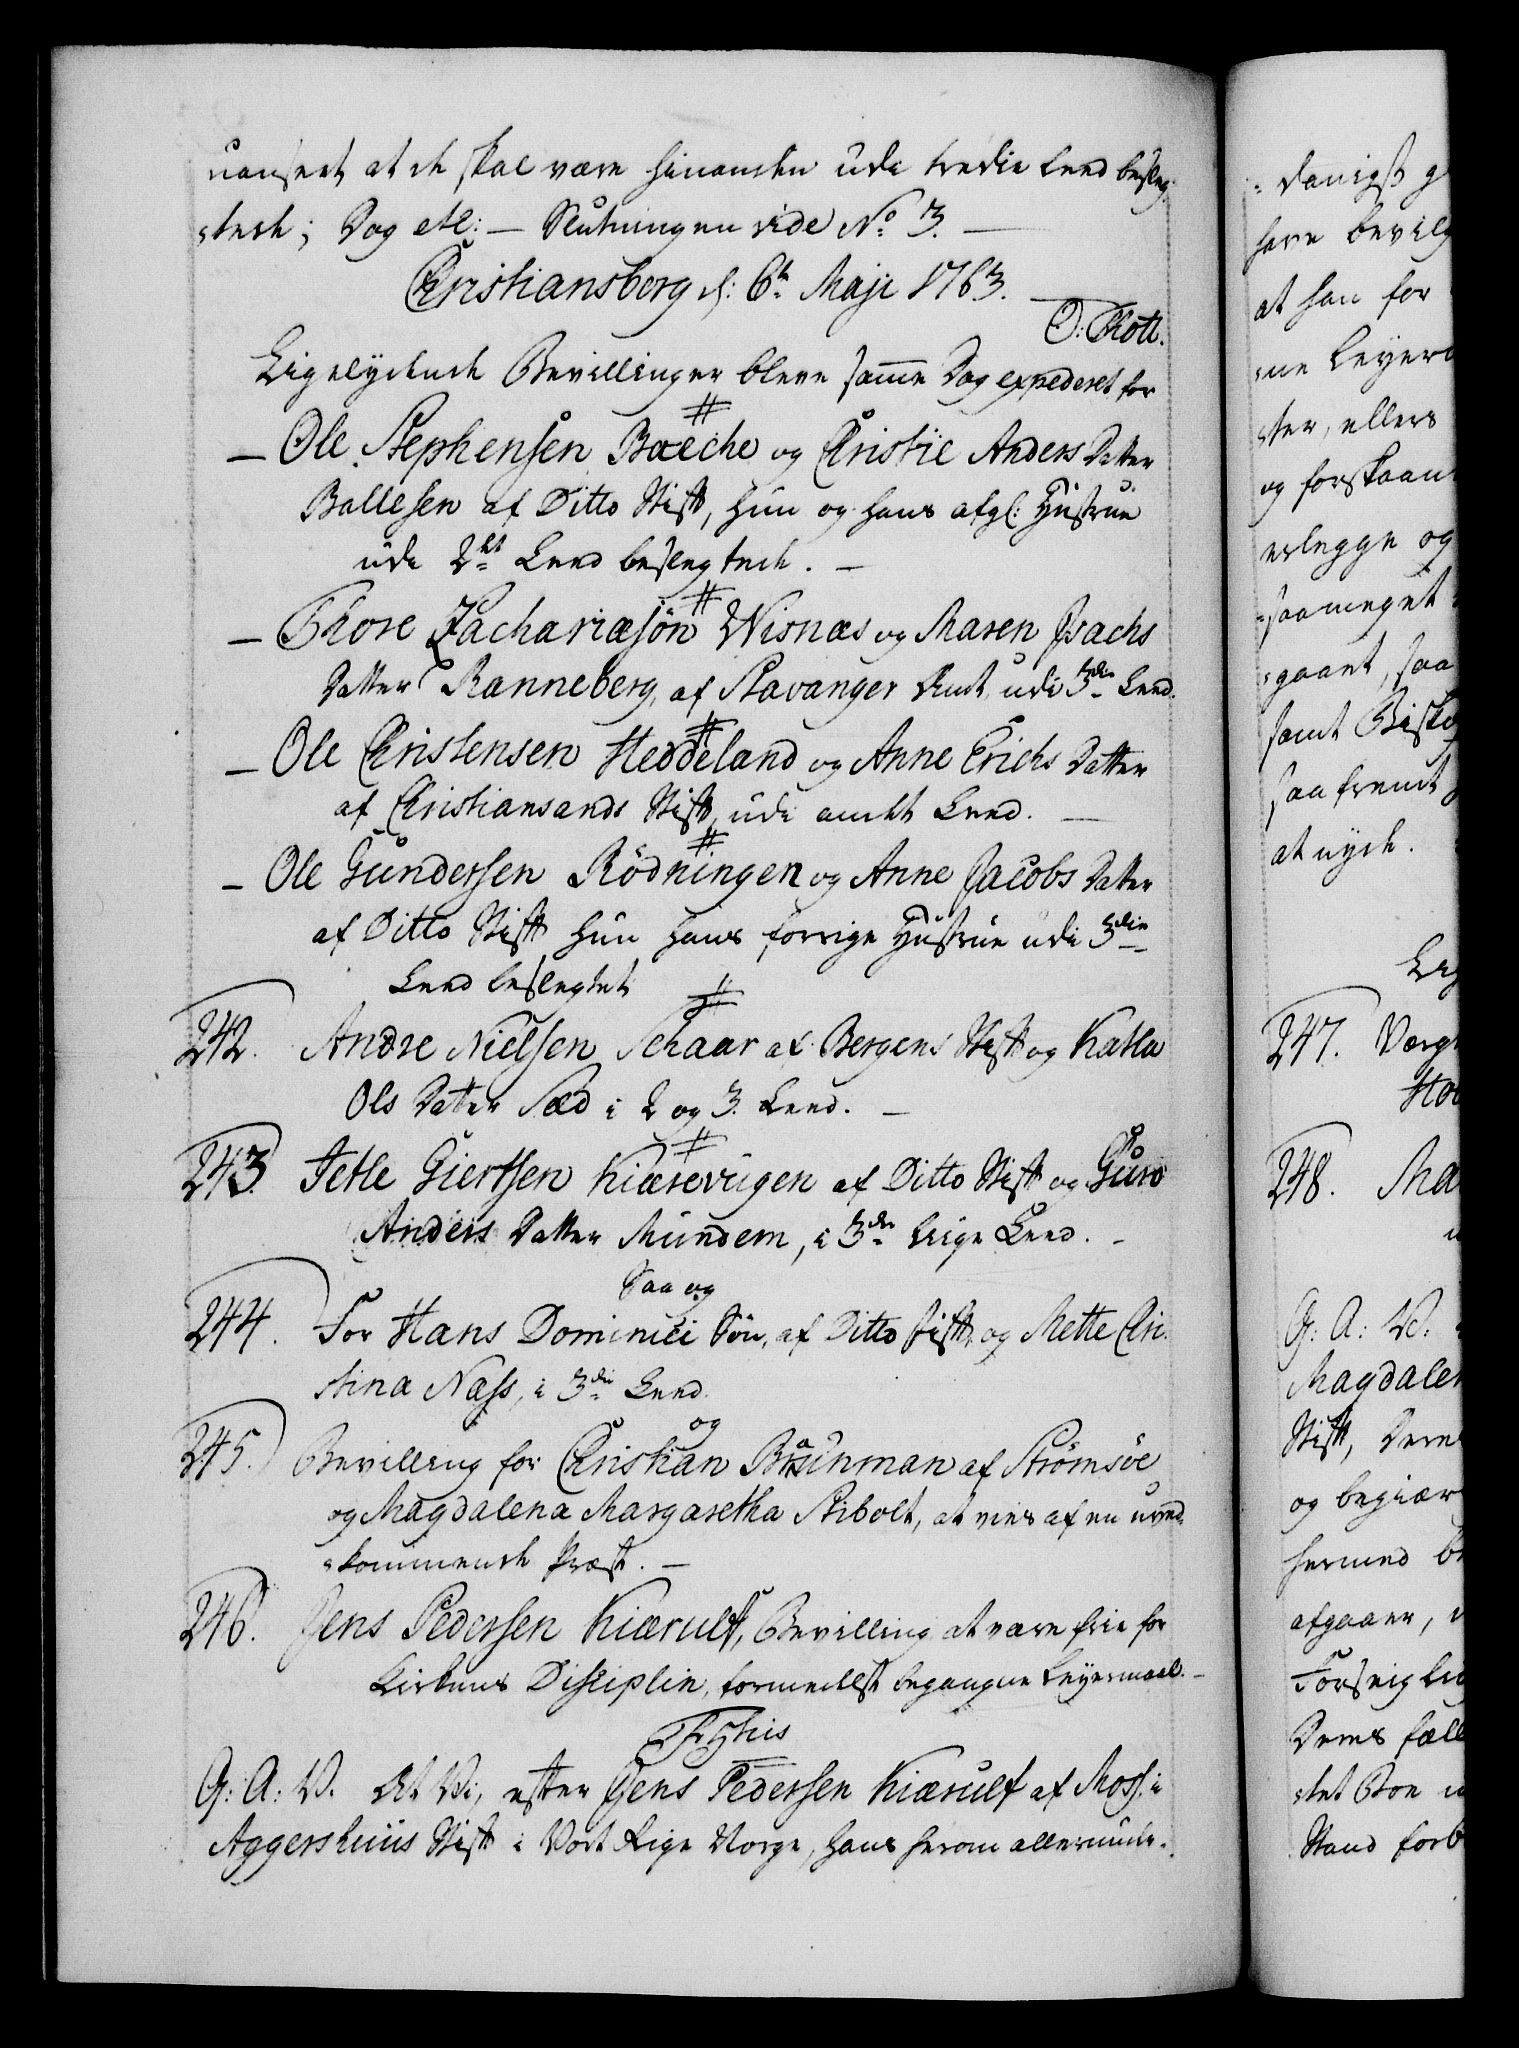 uanseet at de skal være hinanden udi tredie Leed besleg-
-tede; Dog etc: — Slutningen vide No 3. —
Christiansborg d: 6te Maji 1763.
O: Thott.
Ligelydende Bevillinger bleve samme Dag expederet for
#
— Ole Stephensen Bæche og Christie Anders Datter
Ballesen af Ditto Stift, hun og hans afgl: Hustrue
udi 2det Leed beslegtede. —
#
— Thore Zachariæsön Wisnæs og Maren Isachs
Datter Ranneberg, af Stavanger Amt, udi 3die Leed.
#
— Ole Christensen Heddeland og Anne Erichs Datter
af Christiansands Stift, udi andet Leed. —
#
— Ole Gundersen Rödningen og Anne Jacobs Datter
af Ditto Stift hun hans forrige Hustrue udi 3die
Leed beslegtet
#
242. Andre Nielsen Schaar af Bergens Stift og Katla
Ols Datter Sæd i 2 og 3. Leed. —
#
243. Jetle Giertsen Kiærevigen af Ditto Stift og Guro
Anders Datter Mundem, i 3die Liige Leed. —
Saa og
244. For Hans Dominici Sön, af Ditto Stift, og Mette Chri-
stina Nass, i 3die Leed.
og
245. Bevilling for Christian Braunman af Strömsöe
og Magdalena Margaretha Stibolt, at vies af en uved-
-kommende Præst. —
246. Jens Pedersen Kiærulf, Bevilling at være frie for
Kirkens Disciplin, formedelst begangne Leyermaal. —
F: 5tus
G: A: V. At Vi, efter Jens Pedersen Kiærulf af Moss i
Aggershuus Stift i Vort Rige Norge, hans herom allerunde-
-danigst g
have bevilg
at han for
-ne Leyerm
-ster, ellers
og forskaan
erlegge og
-saameget
-gaaet, saa
samt Bisko
saafremt
at nyde.
Lig
247. Værg
Ho
248. Ma
G: A: V:
Magdalen
Stift, Dere
og begiær
hermed be
afgaaer,
Forseiglid
Deres fæll
-tet Boe u
Stand forb